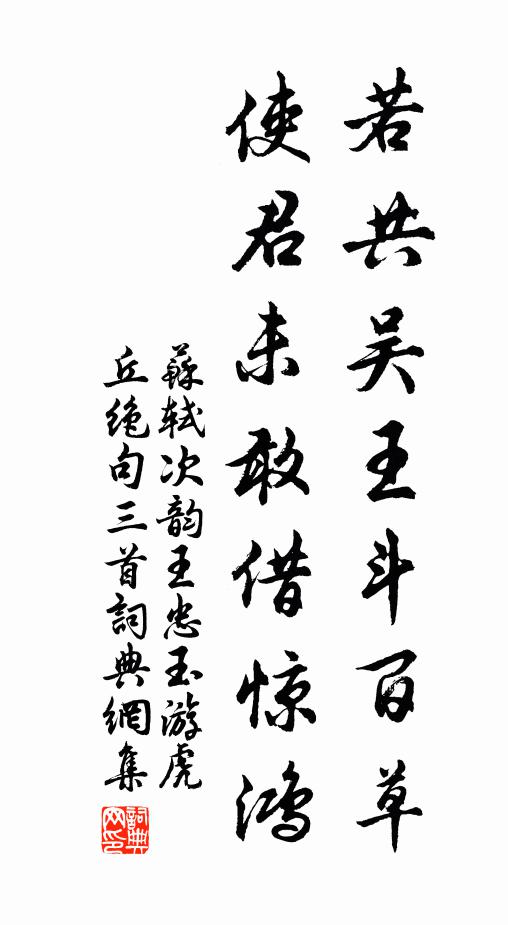 若共吴王斗百草
使君未敢借惊鸿
蘇轼次韵王忠玉游虎
丘绝句三首詞典網集
詞典
网印